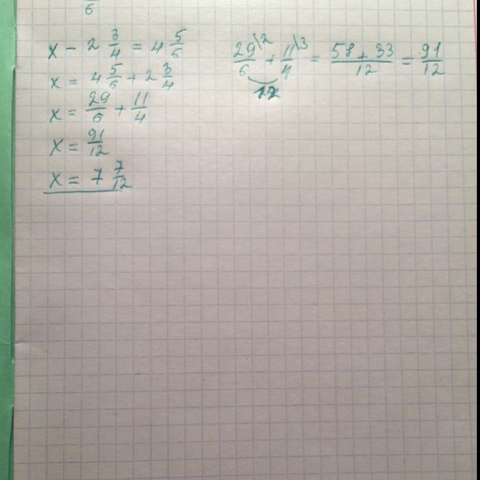 6
x - 2 3/4 = 4 5/6
x = 4 5/6 + 2 3/4
x = 29/6 + 11/4
x = 91/12
x = 7 7/12
29/6 \2 + 11/4 \3 = 58 + 33/12 = 91/12
12